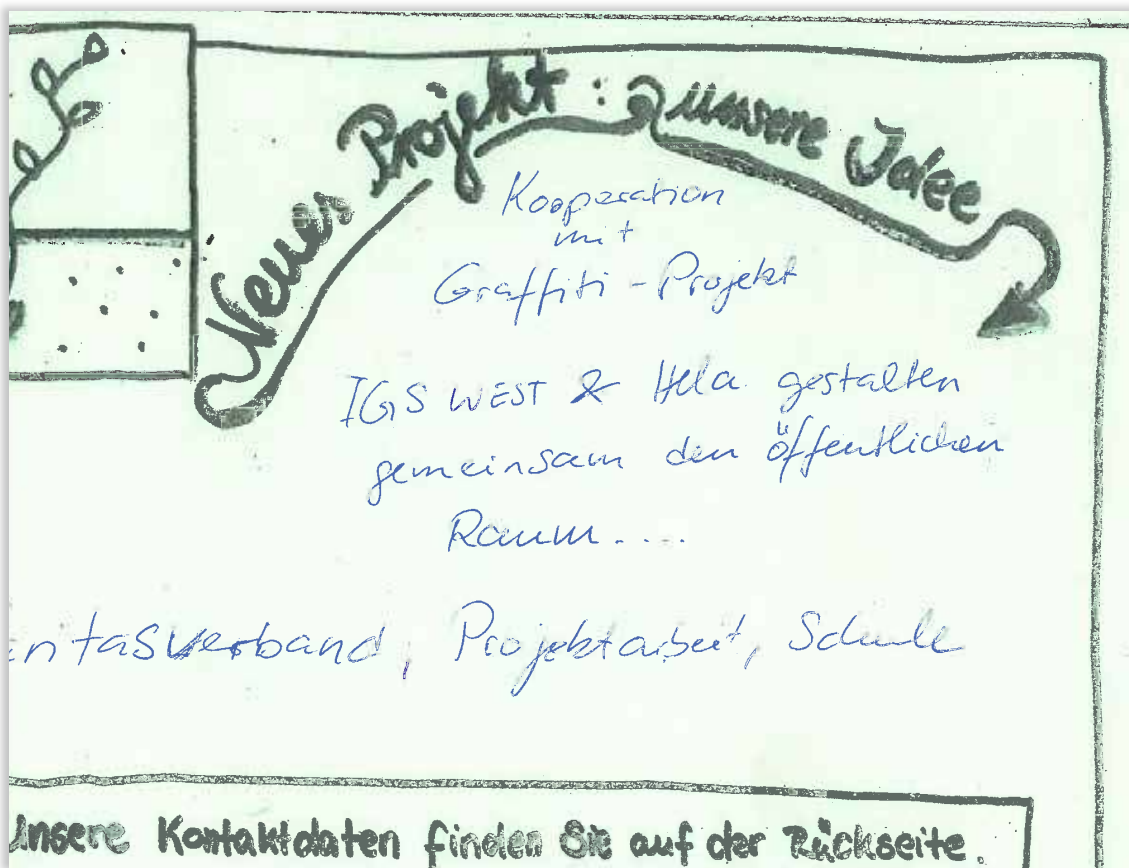 Neues Projekt : unsere Idee
Kooperation
mit
Graffiti - Projekt
IGS WEST & Hela gestalten
gemeinsam den öffentlichen
Raum....
ntasverband, Projektarbeit, Schule
Unsere Kontaktdaten finden Sie auf der Rückseite.